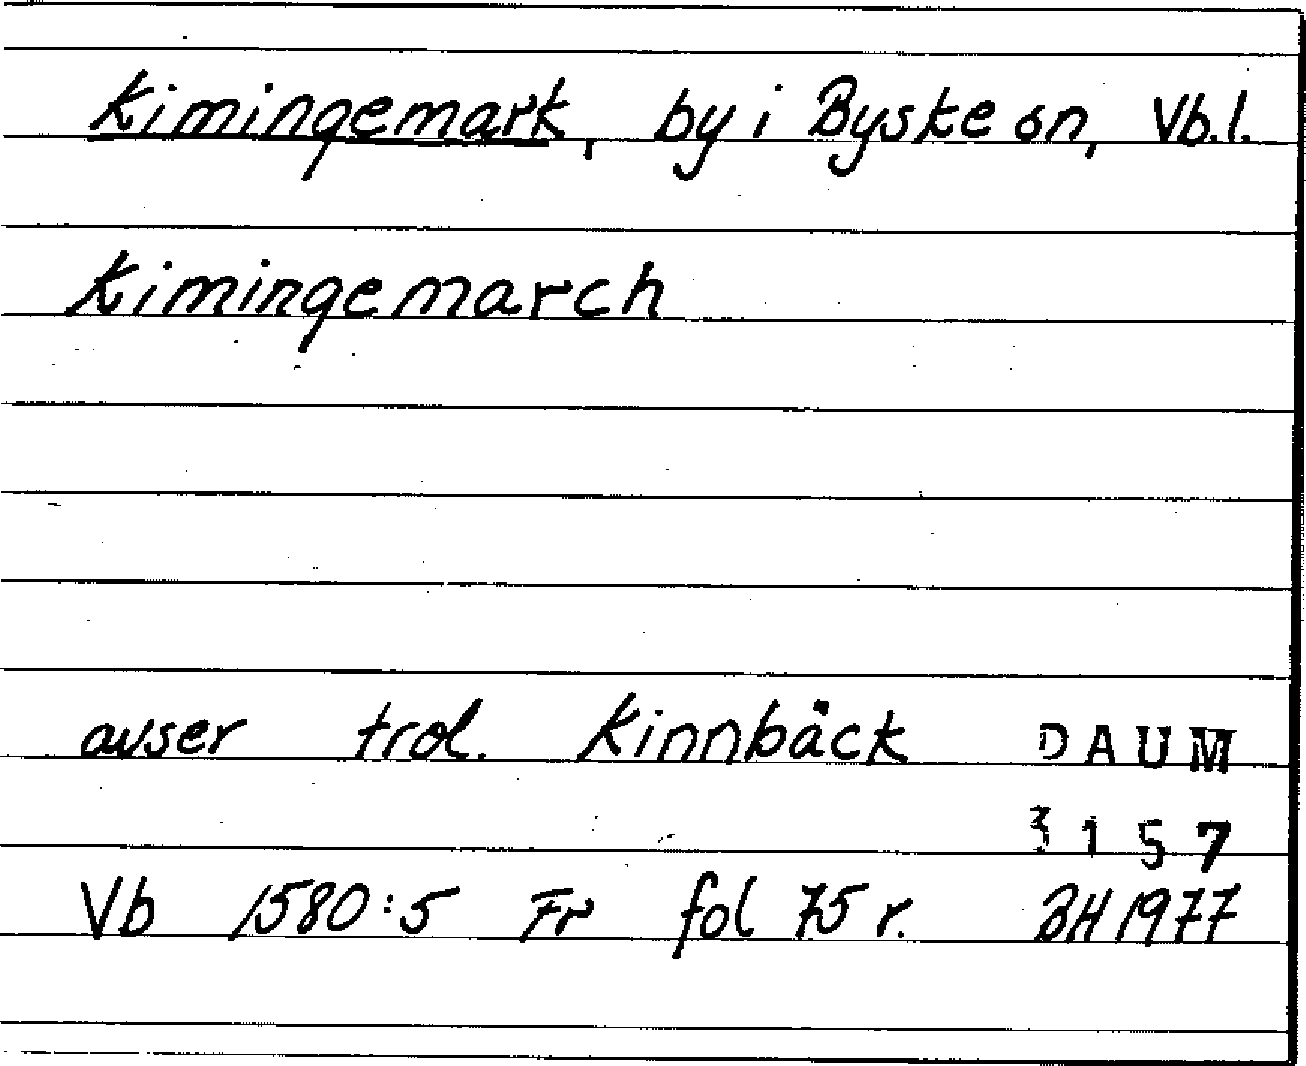 Kimingemark, by i Byske sn, Vb.l.
Kimingemarch
avser trol. Kinnbäck DAUM
3157
Vb 1580:5 Fr fol 75 r. BH 1977